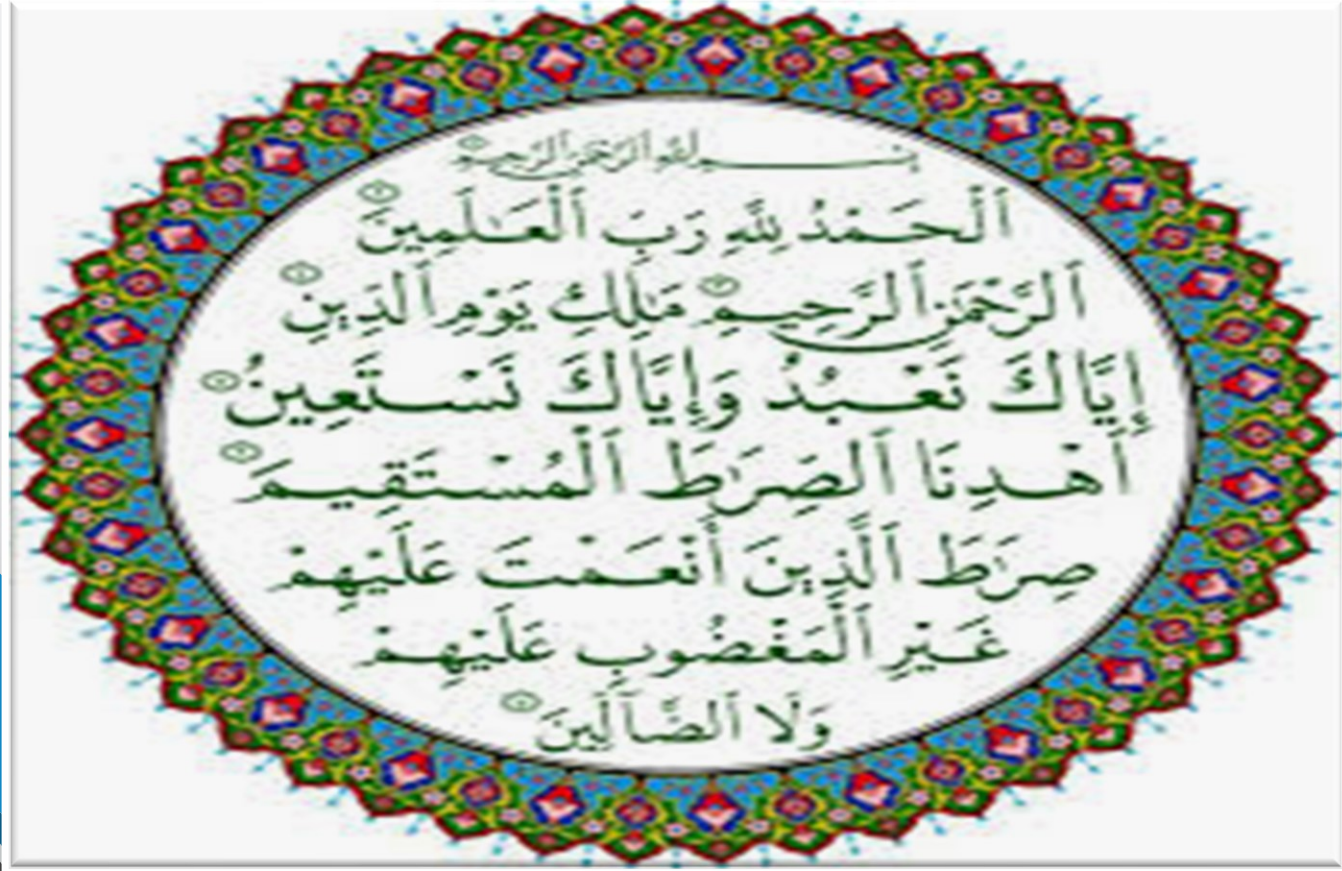 بِسْمِ ٱللَّهِ ٱلرَّحْمَٰنِ ٱلرَّحِيمِ
ٱلْحَمْدُ لِلَّهِ رَبِّ ٱلْعَـٰلَمِينَ
ٱلرَّحْمَٰنِ ٱلرَّحِيمِ ٣ مَـٰلِكِ يَوْمِ ٱلدِّينِ
إِيَّاكَ نَعْبُدُ وَإِيَّاكَ نَسْتَعِينُ
ٱهْدِنَا ٱلصِّرَٰطَ ٱلْمُسْتَقِيمَ
صِرَٰطَ ٱلَّذِينَ أَنْعَمْتَ عَلَيْهِمْ
غَيْرِ ٱلْمَغْضُوبِ عَلَيْهِمْ
وَلَا ٱلضَّآلِّينَ